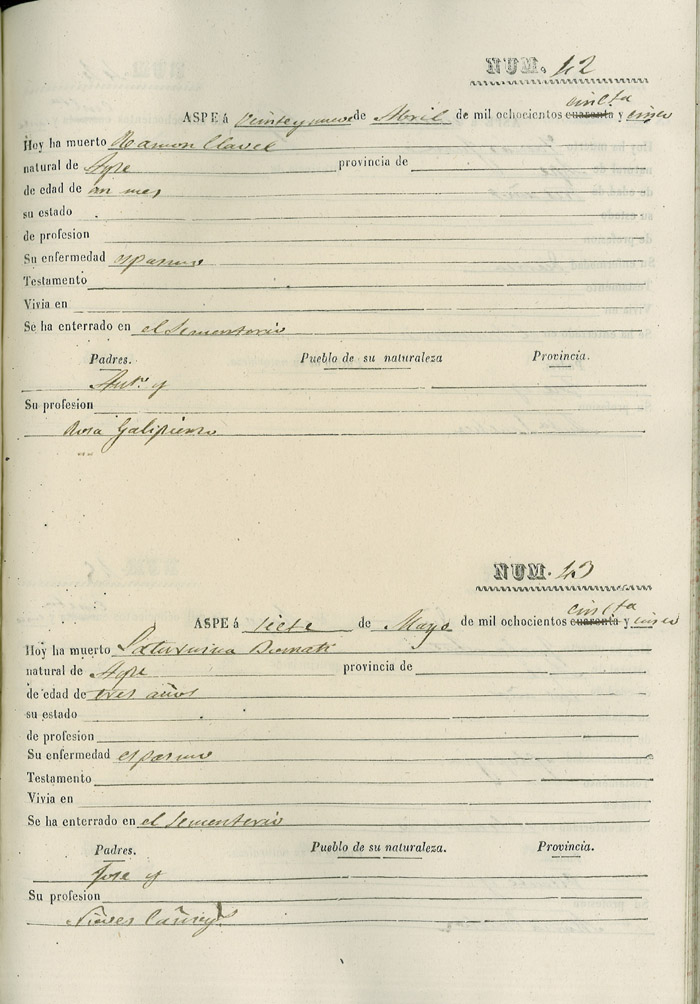 NUM. 12
ASPE á veinte y nueve de Abril de mil ochocientos cuarenta cincta y cinco
Hoy ha muerto Ramon Clavel
natural de Aspe provincia de
de edad de un mes
su estado
de profesion
Su enfermedad espasmo
Testamento
Vivia en
Se ha enterrado en el Sementerio
Padres. Pueblo de su naturaleza Provincia.
Antº y
Su profesion
Rosa Galipienso
NUM. 13
ASPE á siete de Mayo de mil ochocientos cuarenta cincta y cinco
Hoy ha muerto Saturnina
natural de Aspe provincia de
de edad de tres años
su estado
de profesion
Su enfermedad espasmo
Testamento
Vivia en
Se ha enterrado en el Sementerio
Padres. Pueblo de su naturaleza. Provincia.
Jose y
Su profesion
Nieves